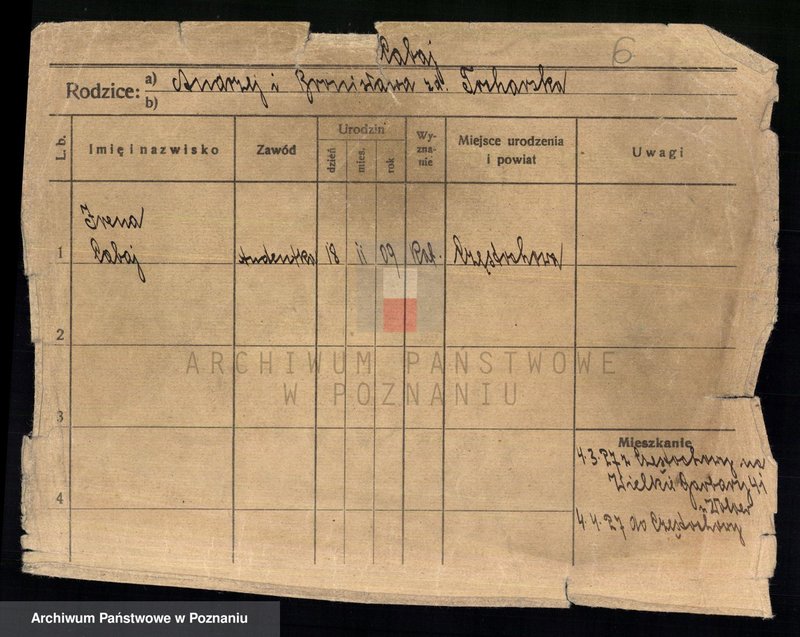 Cabaj
6
Rodzice: a) Andrzej i Bronisława zd. Tocharska
b)
L. b.
Imię i nazwisko
Zawód
Urodzin
dzień
mies.
rok
Wy-
zna-
nie
Miejsce urodzenia
i powiat
Uwagi
Irena
1 Cabaj studentka 18 11 09 Kat. Częstochowa
2
ARCHIWUM PAŃSTWOWE
W POZNANIU
3
Mieszkanie
4.3.27 z Częstochowy na
Wielkie Garbary 41
4
4.4.27 do Częstochowy
Archiwum Państwowe w Poznaniu